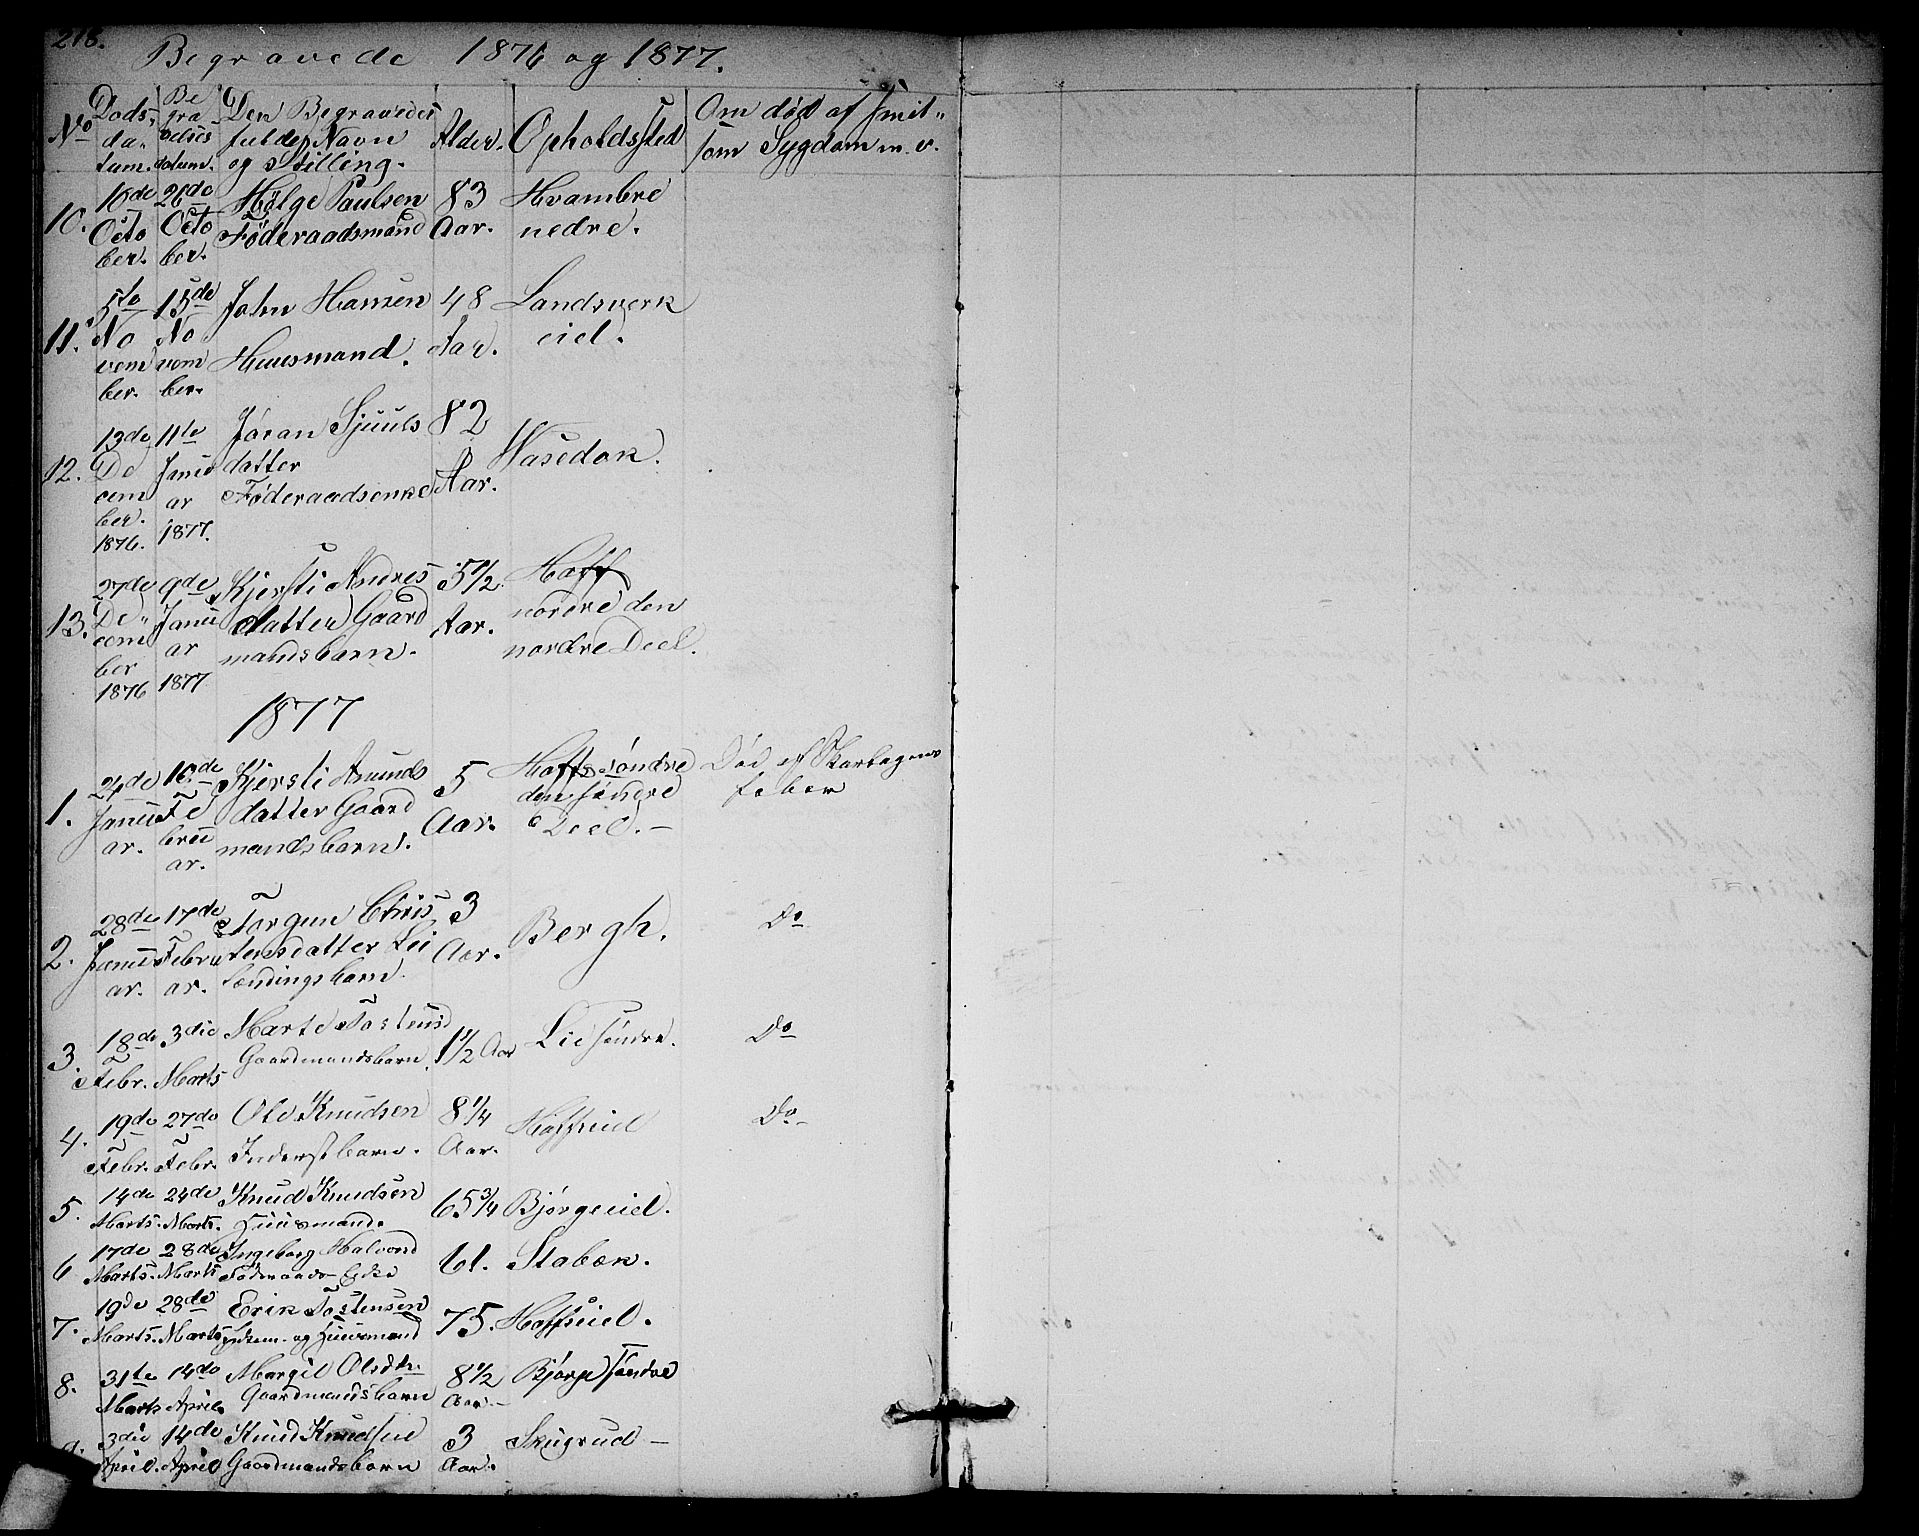 218.
Begravede 1876 og 1877.
No Døds-datum. Begravelses datum. Den Begravedes fulde Navn og Stilling. Alder. Opholdssted Om død af Smitsom Sygdom m. v.
10. 16de October. 26de October. Hølge Paulsen Føderaadsmand 83 Aar. Hvambre nedre.
11. 5te November. 15de November. John Hansen Huusmand. 48 Aar. Landsverk eiel.
12. 13de December. 1876. 11te Januar 1877. Jøran Sjuuls datter Føderaadsenke 82 Aar. Wasedok.
13. 27de December 1876 9de Januar 1877 Kjersti Andres datter Gaard mandsbarn. 5 1/2 Aar. Hoff nordre den nordre Deel.
1877
1. 24de Januar. 16de Februar. Kjersti Amunds datter Gaard mandsbarn. 5 Aar. Hoff søndre den søndre Deel. Død af Skarlagens feber
2. 28de Januar. 17de Februar. Torgun Chris tensdatter Lei lændingsbarn. 3 Aar. Bergh. Do
3. 18de Febr. 3die Marts Marte Tostensd Gaardmandsbarn. 1 1/2 Aar Lie søndre. Do
4. 19de Febr. 27de Febr. Ole Knudsen Inderstbarn. 8 1/4 Aar. Hoffseiel Do
5. 14de Marts. 24de Marts. Knud Knudsen Huusmand. 65 3/4 Bjørgeeiel.
6 17de Marts. 28de Marts Ingeborg Halvorsd Føderaads-Enke 61. Stabæk.
7. 19de Marts. 28de Marts Erik Tostensen Enkem. og Huusmand 75. Hoffseiel.
8. 31te Marts 14de April. Margit Olsdtr. Gaardmandsbarn 8 1/2 Aar. Bjørge søndre
9. 3die April. 14de April Knud Knudsen Gaardmandsbarn 3 Aar. Skugrud